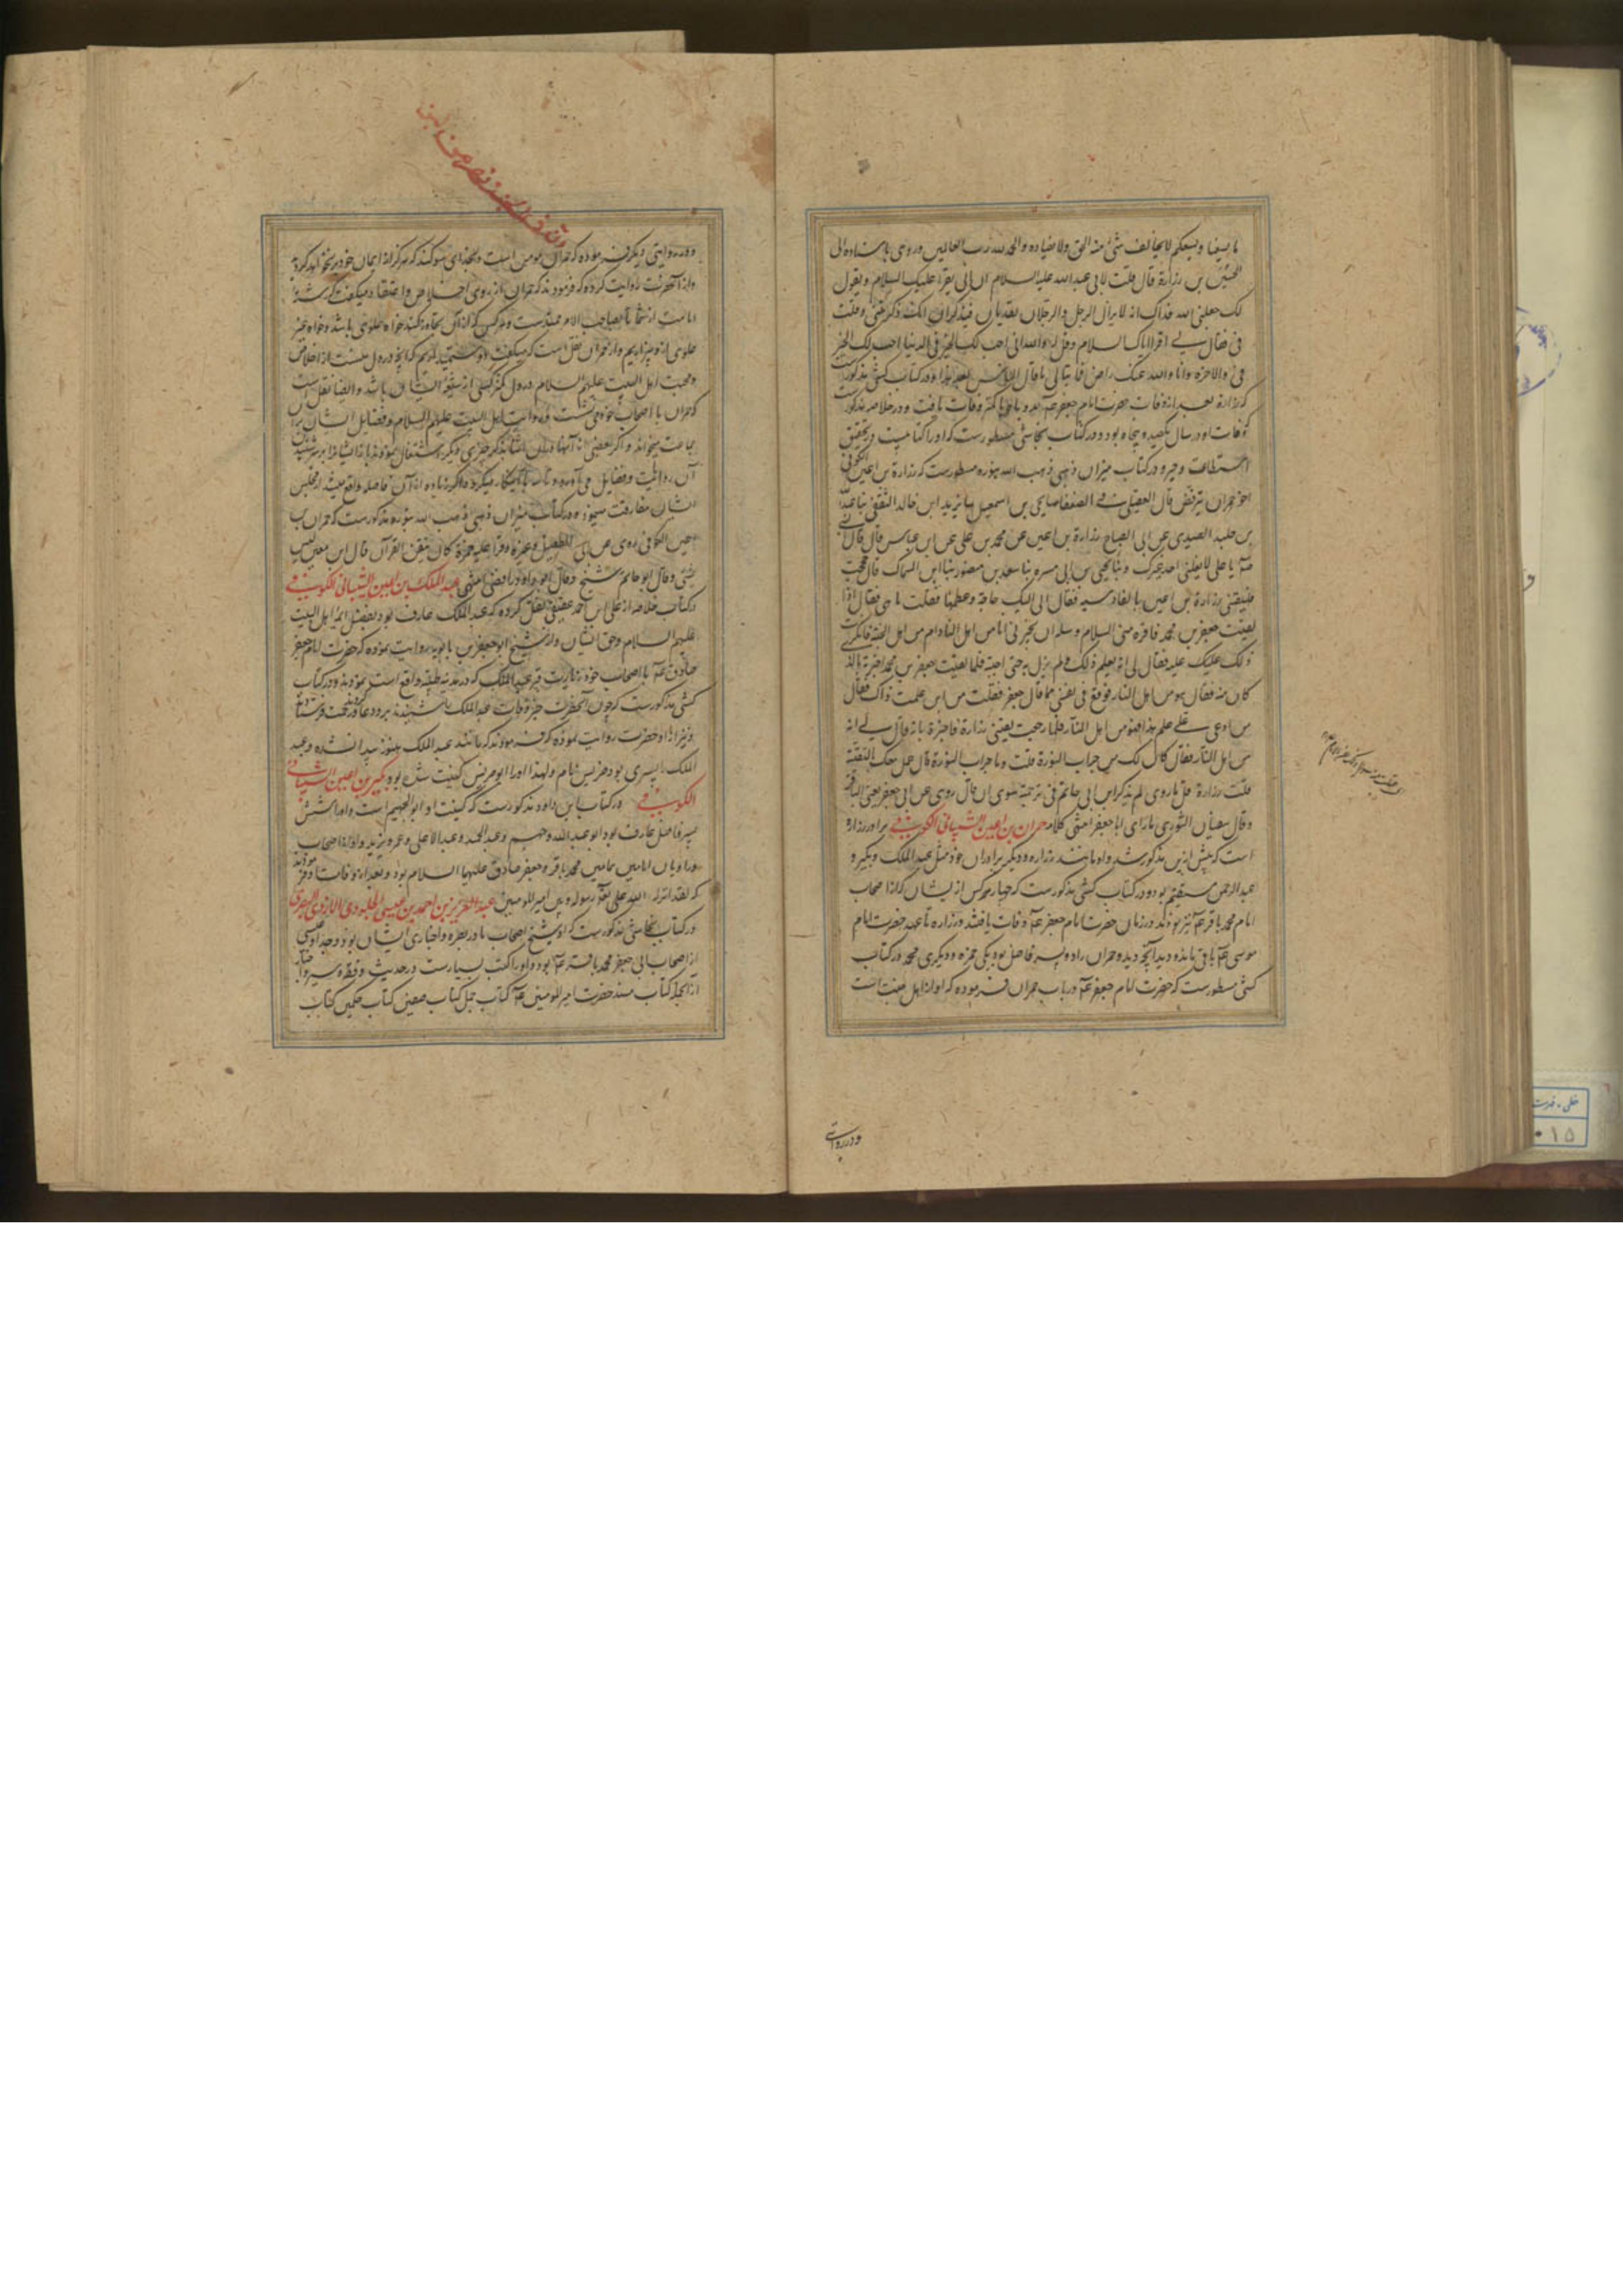 ما یسعنا و یسعکم لا یخالف شیء منه الحق ولا یضاده والحمد لله رب العالمین وروی باسناده الی
الحسین بن زرارة قال قلت لابی عبدالله علیه السلام ان ابی یقرأ علیک السلام و یقول
لک جعلنی الله فداک انه لا یزال الرجل والرجلان یقدمان فیذکران انک ذکرتنی وقلت
فی فقال لی اقرأ اباک السلام وقل له والله انی احب لک الخیر فی الدنیا احب لک الخیر
فی والاخرة وانا والله عنک راض فما تبالی ما قال الناس بعد هذا و در کتاب کشی مذکورست
که زراره بعد از وفات حضرت امام جعفر بدو ماه یا کمتر وفات یافت و در خلاصه مذکور
که وفات او در سال یکصد و پنجاه بود و در کتاب نجاشی مسطورست که او را کتابیست در تحقیق
استطاعت و جبر و در کتاب میزان ذهبی ذهب الله بنوره مسطورست که زرارة بن اعین الکوفی
اخو حمران یترفض قال العقیلی فی الضعفا یحیی بن اسمعیل یزید ابن خالد الثقفی عبدالله
بن خلید الصیدی عن ابی الصباح زرارة بن اعین عن محمد بن علی عن ابن عباس قال قال
یا علی لا یغسلنی احد غیرک یحیی بن ابی مسره سعد بن منصور ابن السماک قال حججت
فلقینی زرارة بن اعین بالقادسیه فقال ان لی الیک حاجة وعظمها فقلت ما هی فقال اذا
لقیت جعفر بن محمد فاقره منی السلام وسله ان یخبرنی انا من اهل النار ام من اهل الجنة فانکرت
ذلک علیک علیه فقال لی انه یعلم ذلک ولم یزل بی حتی اجبته فلما لقیت جعفر بن محمد اخبرته بالذی
کان منه فقال هو من اهل النار فوقع فی نفسی مما قال جعفر فقلت من این علمت ذاک فقال
من ادعی علی علم هذا فهو من اهل النار فلما رجعت لقینی زرارة فاخبرته بانه قال لی انه
من اهل النار فقال کال لک من جراب النورة قلت وما جراب النورة قال عمل معک بالتقیة
قلت زرارة قل ما روی لم یذکر ابن ابی حاتم فی ترجمته سوی ان قال روی عن ابی جعفر یعنی الباقر
وقال سفیان الثوری ما رای ابا جعفر انتهی کلامه حمران بن اعین الشیبانی الکوفی برادر زراره
است که پیش ازین مذکور شد و او مانند زراره و دیگر برادران خود مثل عبدالملک و بکیر و
عبدالرحمن مستقیم بود و در کتاب کشی مذکورست که چهار کس از ایشان که از اصحاب
امام محمد باقر نیز بودند در زمان حضرت امام جعفر وفات یافتند و زراره تا عهد حضرت امام
موسی باقی ماند و دید آنچه دید و حمران را دو پسر فاضل بود یکی حمزه و دیگری محمد در کتاب
کشی مسطورست که حضرت امام جعفر در باب حمران فرموده که او از اهل جنت است
و در روایتی
و در روایتی دیگر فرموده که حمران مومن است و بخدای سوگند که هرگز از ایمان خود برنخواهد گردید
و از آنحضرت روایت کرده که فرمودند که حمران از روی اخلاص و اعتقاد میگفت که رشته
امامت از شما تا بصاحب الامر ممتدست و هر کس که از آن تجاوز کند خواه علوی باشد و خواه غیر
علوی ازو بیزاریم و از حمران نقل است که میگفت که آنچه در دل منست از اخلاص
و محبت اهل البیت علیهم السلام در دل کمتر کسی از شیعه ایشان باشد و ایضا نقل است
که حمران با اصحاب خود می نشست و روایت اهل البیت علیهم السلام و فضایل ایشان بر آن
جماعت میخواند و اگر بعضی از آنها در آن اثنا بذکر چیزی دیگر اشتغال مینمودند باز ایشانرا بر سر شنیدن
آن روایت و فضایل می آورد و تا سه بار تکرار میکرد و اگر زیاده از آن فاصله واقع میشد از مجلس
ایشان مفارقت مینمود و در کتاب میزان ذهبی ذهب الله بنوره مذکورست که حمران بن
اعین الکوفی روی عن ابی الطفیل و غیره و قرا علیه حمزة کان متقن القرآن قال ابن معین لیس
بشیء وقال ابو حاتم شیخ وقال ابو داود رافضی انتهی عبدالملک بن اعین الشیبانی الکوفی
در کتاب خلاصه از علی بن احمد عقیقی نقل کرده که عبدالملک عارف بود بفضل ائمه اهل البیت
علیهم السلام وحق ایشان و از شیخ ابوجعفر بن بابویه روایت نموده که حضرت امام جعفر
صادق با اصحاب خود زیارت قبر عبدالملک که در مدینه طیبه واقع است نمودند و در کتاب
کشی مذکورست که چون آنحضرت خبر وفات عبدالملک شنیدند بر و دعا و رحمت فرستاده
و نیز از آنحضرت روایت نموده که فرمودند که مانند عبدالملک هنوز پیدا نشده و عبد
الملک را پسری بود ضریس نام ولهذا او را ابو ضریس کنیت شده بود بکیر بن اعین الشیبانی
الکوفی در کتاب ابن داود مذکورست که کنیت او ابوالجهم است و او را شش
پسر فاضل عارف بود ابوعبدالله و جهم و عبدالحمید و عبدالاعلی و عمر و یزید و او از اصحاب
و راویان امامین همامین محمد باقر و جعفر صادق علیهما السلام بود و بعد از وفات او فرمودند
که لقد انزله الله علی بین رسوله و بین امیرالمومنین عبدالعزیز بن احمد بن عیسی الجلودی الازدی البصری
در کتاب نجاشی مذکورست که او شیخ اصحاب ما در بصره و اخباری ایشان بود و جد او عیسی
از اصحاب ابی جعفر محمد باقر بود و او را کتب بسیارست در حدیث و فقه و سیر و اخبار
از انجمله کتاب مسند حضرت امیرالمومنین کتاب جمل کتاب صفین کتاب حکمین کتاب